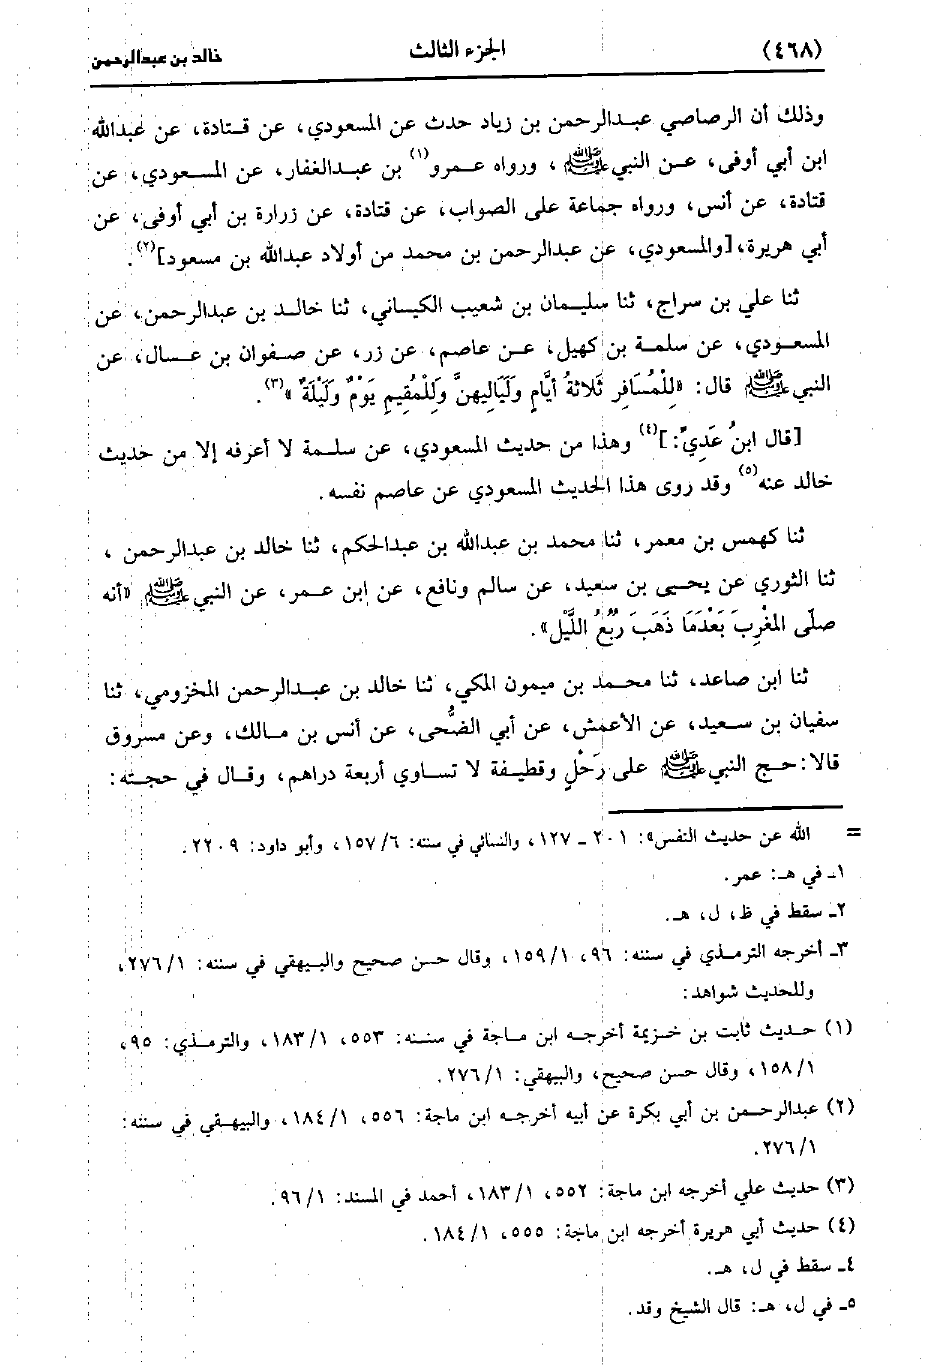 (٤٦٨) الجزء الثالث خالد بن عبدالرحمن
وذلك أن الرصاصي عبدالرحمن بن زياد حدث عن المسعودي، عن قتادة، عن عبدالله
ابن أبي أوفى، عن النبي ﷺ، ورواه عمرو(١) بن عبدالغفار، عن المسعودي، عن
قتادة، عن أنس، ورواه جماعة على الصواب، عن قتادة، عن زرارة بن أبي أوفى، عن
أبي هريرة، [والمسعودي، عن عبدالرحمن بن محمد من أولاد عبدالله بن مسعود](٢).
ثنا علي بن سراج، ثنا سليمان بن شعيب الكيساني، ثنا خالد بن عبدالرحمن، عن
المسعودي، عن سلمة بن كهيل، عن عاصم، عن زر، عن صفوان بن عسال، عن
النبي ﷺ قال: «لِلْمُسَافِرِ ثَلَاثَةُ أَيَّامٍ وَلَيَالِيهِنَّ وَلِلْمُقِيمِ يَوْمٌ وَلَيْلَةٌ»(٣).
[قال ابنُ عَدِيّ:](٤) وهذا من حديث المسعودي، عن سلمة لا أعرفه إلا من حديث
خالد عنه(٥) وقد روى هذا الحديث المسعودي عن عاصم نفسه.
ثنا كهمس بن معمر، ثنا محمد بن عبدالله بن عبدالحكم، ثنا خالد بن عبدالرحمن،
ثنا الثوري عن يحيى بن سعيد، عن سالم ونافع، عن ابن عمر، عن النبي ﷺ «أنه
صلّى المغْرِبَ بَعْدَمَا ذَهَبَ رُبُعُ اللَّيْل».
ثنا ابن صاعد، ثنا محمد بن ميمون المكي، ثنا خالد بن عبدالرحمن المخزومي، ثنا
سفيان بن سعيد، عن الأعمش، عن أبي الضُّحى، عن أنس بن مالك، وعن مسروق
قالا: حج النبي ﷺ على رَحْلٍ وقطيفة لا تساوي أربعة دراهم، وقال في حجته:
= الله عن حديث النفس٩: ٢٠١ ـ ١٢٧، والنسائي في سننه: ١٥٧/٦، وأبو داود: ٢٢٠٩.
١ـ في هـ: عمر.
٢ـ سقط في ظ، ل، هـ.
٣ـ أخرجه الترمذي في سننه: ٩٦، ١٥٩/١، وقال حسن صحيح والبيهقي في سننه: ٢٧٦/١،
وللحديث شواهد:
(١) حديث ثابت بن خزيمة أخرجه ابن ماجة في سننه: ٥٥٣، ١٨٣/١، والترمذي: ٩٥،
١٥٨/١، وقال حسن صحيح، والبيهقي: ٢٧٦/١.
(٢) عبدالرحمن بن أبي بكرة عن أبيه أخرجه ابن ماجة: ٥٥٦، ١٨٤/١، والبيهقي في سننه:
٢٧٦/١.
(٣) حديث علي أخرجه ابن ماجة: ٥٥٢، ١٨٣/١، أحمد في المسند: ٩٦/١.
(٤) حديث أبي هريرة أخرجه ابن ماجة: ٥٥٥، ١٨٤/١.
٤ـ سقط في ل، هـ.
٥ـ في ل، هـ: قال الشيخ وقد.